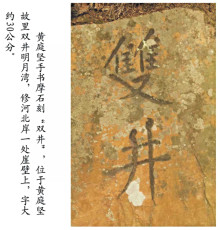 黄庭坚手书摩石刻“双井”，位于黄庭坚
故里双井明月湾，修河北岸一处崖壁上，字大
约30公分。
雙井